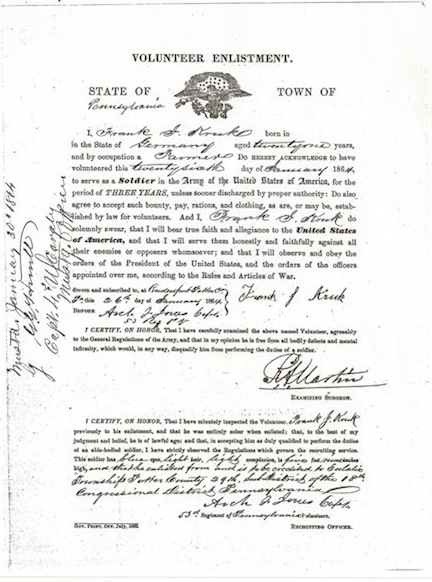 VOLUNTEER ENLISTMENT.
STATE OF TOWN OF
Pennsylvania
I, Frank J. Kruk born in
in the State of Germany aged twenty one years,
and by occupation a Farmer Do HEREBY ACKNOWLEDGE to have
volunteered this twenty sixth day of January 1864,
to serve as a Soldier in the Army of the United States of America, for
the period of THREE YEARS, unless sooner discharged by proper authority: Do also
agree to accept such bounty, pay, rations, and clothing, as are, or may be, estab-
lished by law for volunteers. And I, Frank J. Kruk do
solemnly swear, that I will bear true faith and allegiance to the United States
of America, and that I will serve them honestly and faithfully against all
their enemies or opposers whomsoever; and that I will observe and obey
the orders of the President of the United States, and the orders of the officers
appointed over me, according to the Rules and Articles of War.
Sworn and subscribed to, at Coudersport Potter Co
Pa this 26th day of January 1864
BEFORE Arch F Jones Capt.
53 Reg P V
Frank J Kruk
I CERTIFY, ON HONOR, That I have carefully examined the above named Volunteer, agreeably
to the General Regulations of the Army, and that in my opinion he is free from all bodily defects and mental
infirmity, which would, in any way, disqualify him from performing the duties of a soldier.
Martin
EXAMINING SURGEON.
I CERTIFY, ON HONOR, That I have minutely inspected the Volunteer, Frank J. Kruk
previously to his enlistment, and that he was entirely sober when enlisted; that, to the best of my
judgment and belief, he is of lawful age; and that, in accepting him as duly qualified to perform the duties
of an able-bodied soldier, I have strictly observed the Regulations which govern the recruiting service.
This soldier has blue eyes, light hair, light complexion, is five feet inches
high, and that he enlisted from and is to be credited to Eulalia
Township Potter County 29th Sub District of the 18th
Congressional District, Pennsylvania
Arch F Jones Capt.
53d Regiment of Pennsylvania Volunteers,
RECRUITING OFFICER.
GOV. PRINT. OFF. July, 1863.
Mustered January 30th 1864
by
Capt